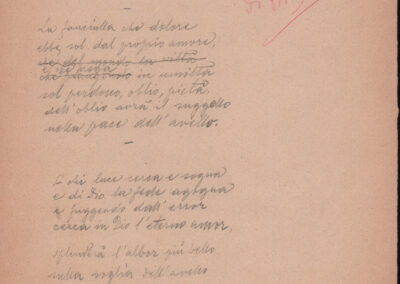 La fanciulla che dolore
ebbe sol dal proprio amore,
e re prega
in umiltà
sol perdono, oblio, pietà,
dell'oblio avrà il suggello
nella pace dell'avello.
E chi luce cerca e sogna
e di Dio la fede agogna
e fuggendo dall'error
cerca in Dio l'eterno amor,
splenderà l'albor più bello
sulla soglia dell'avello